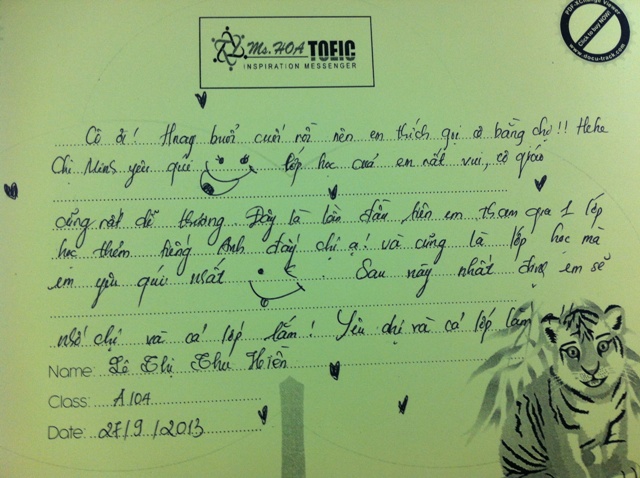 Ms. HOA TOEIC
INSPIRATION MESSENGER
PDF-XChange Viewer
Click to buy NOW!
www.docu-track.com
Cô ơi! Hnay buổi cuối rồi nên em thích gọi cô bằng chị!! Hehe
Chị Minh yêu quí lớp học của em rất vui, cô giáo
cũng rất dễ thương Đây là lần đầu tiên em tham gia 1 lớp
học thêm tiếng Anh đấy chị ạ! và cũng là lớp học mà
em yêu quí nhất. Sau này nhất định em sẽ
nhớ chị và cả lớp lắm! Yêu chị và cả lớp lắm !!!
Name: Lê Thị Thu Hiền
Class: A104
Date: 27/9/2013